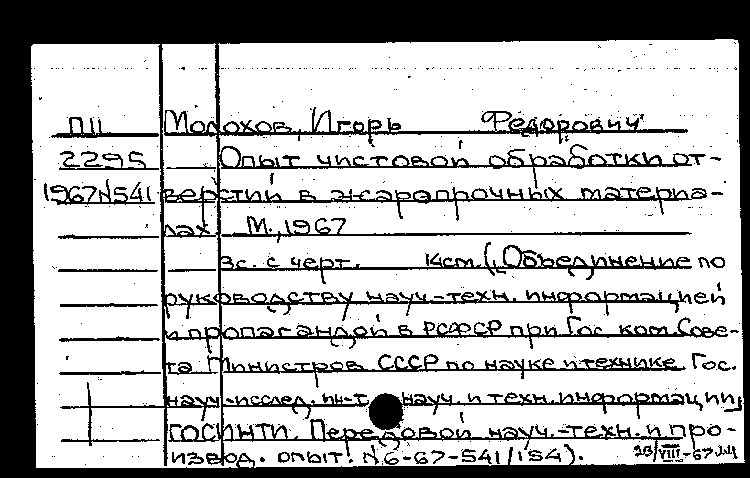 П11 Молохов, Игорь Федорович
2295 Опыт чистовой обработки от-
1967№541 верстий в жаропрочных материа-
лах М., 1967
3с. с черт. 14см. („Объединение по
руководству науч.-техн. информацией
и пропагандой в РСФСР при Гос. ком. Сове-
та Министров СССР по науке и технике. Гос.
науч-исслед. ин-т науч. и техн. информации
ГОСИНТИ. Передовой науч.-техн. и про-
извод. опыт. №6-67-541/154).